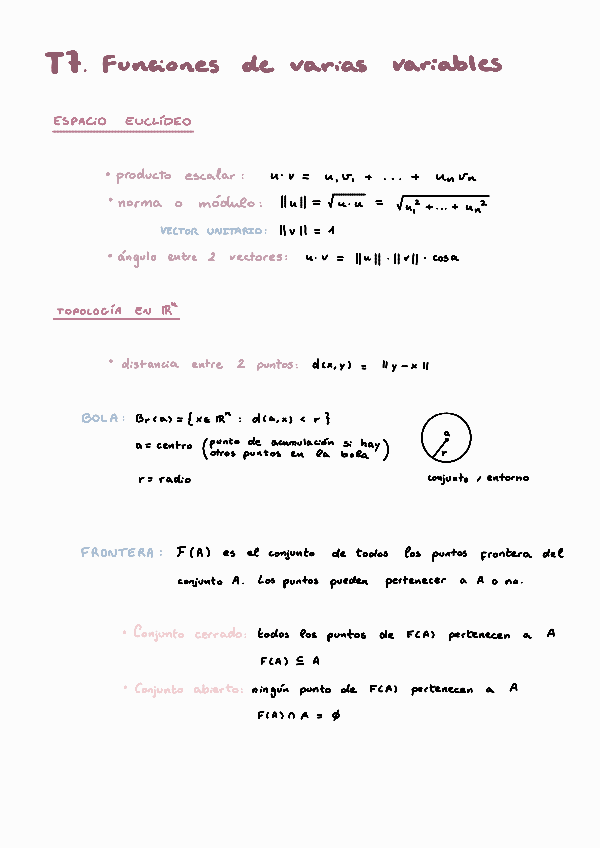 T7. Funciones de varias variables
ESPACIO EUCLÍDEO
• producto escalar: u·v = u₁v₁ + ... + uₙvₙ
• norma o módulo: ||u|| = √(u·u) = √(u₁² + ... + uₙ²)
VECTOR UNITARIO: ||v|| = 1
• ángulo entre 2 vectores: u·v = ||u||·||v||·cosα
TOPOLOGÍA EN ℝⁿ
• distancia entre 2 puntos: d(x,y) = ||y-x||
BOLA: Br(a) = {x∈ℝⁿ : d(a,x) < r}
a = centro (punto de acumulación si hay
otros puntos en la bola)
a
r
r = radio
conjunto / entorno
FRONTERA: F(A) es el conjunto de todos los puntos frontera del
conjunto A. Los puntos pueden pertenecer a A o no.
• Conjunto cerrado: todos los puntos de F(A) pertenecen a A
F(A) ⊆ A
• Conjunto abierto: ningún punto de F(A) pertenecen a A
F(A) ∩ A = ∅